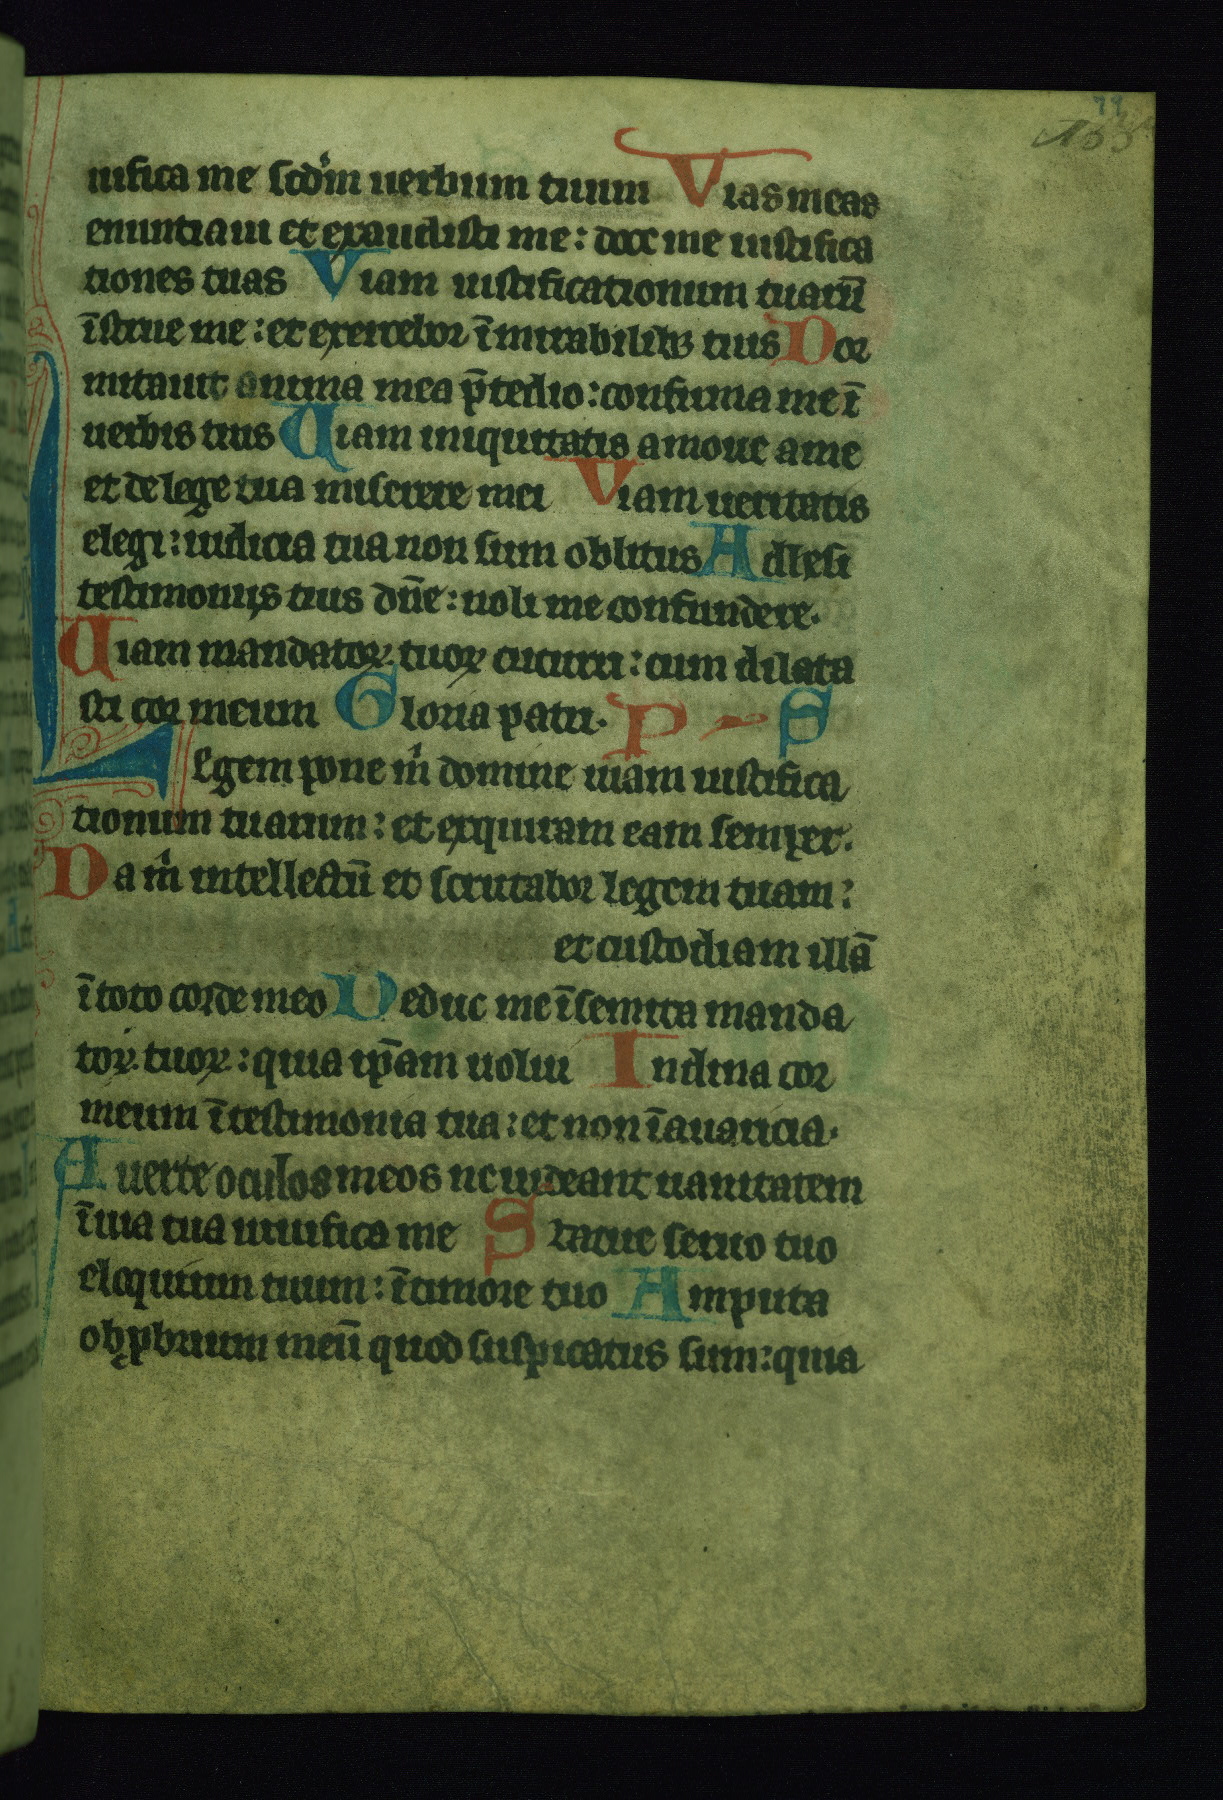 79
163
uifica me scd̓m uerbum tuum Vias meas
enuntiaui et exaudisti me: doce me iustifica
tiones tuas Viam iustificationum tuarū
īstrue me: et exercebor ī mirabilibꝫ tuis Dor
mitauit anima mea p̄ tedio: confirma me ī
uerbis tuis Uiam iniquitatis amoue a me
et de lege tua miserere mei Viam ueritatis
elegi: iudicia tua non sum oblitus Adhesi
testimonijs tuis dn̄e: noli me confundere.
Uiam mandatoꝝ tuoꝝ cucurri: cum dilata
sti cor meum Gloria patri. P S
Legem pone m̓ domine uiam iustifica
tionum tuarum: et exquiram eam semper.
Da m̓ intellectū et scrutabor legem tuam:
et custodiam illā
ī toto corde meo Deduc me ī semita manda
toꝝ tuoꝝ: quia ip̄am uolui Inclina cor
meum ī testimonia tua: et non ī auaricia.
Auerte oculos meos ne uideant uanitatem
ī uia tua uiuifica me Statue seruo tuo
eloquium tuum: ī timore tuo Amputa
obꝓbrium meū quod suspicatus sum: quia